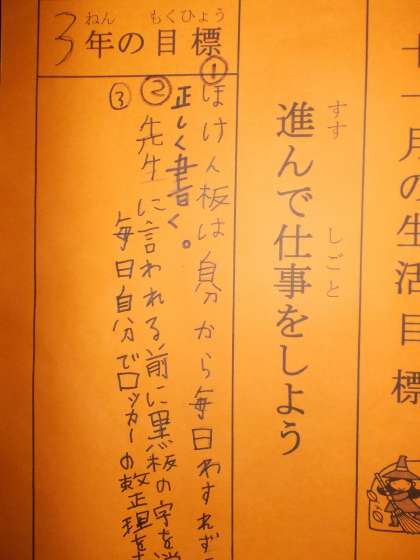 十一月の生活目標
進んで仕事をしよう
すす
しごと
3年の目標
ねん
もくひょう
①ほけん板は自分から毎日わすれず
正しく書く。
②先生に言われる前に黒板の字を消
③毎日自分でロッカーの整理を